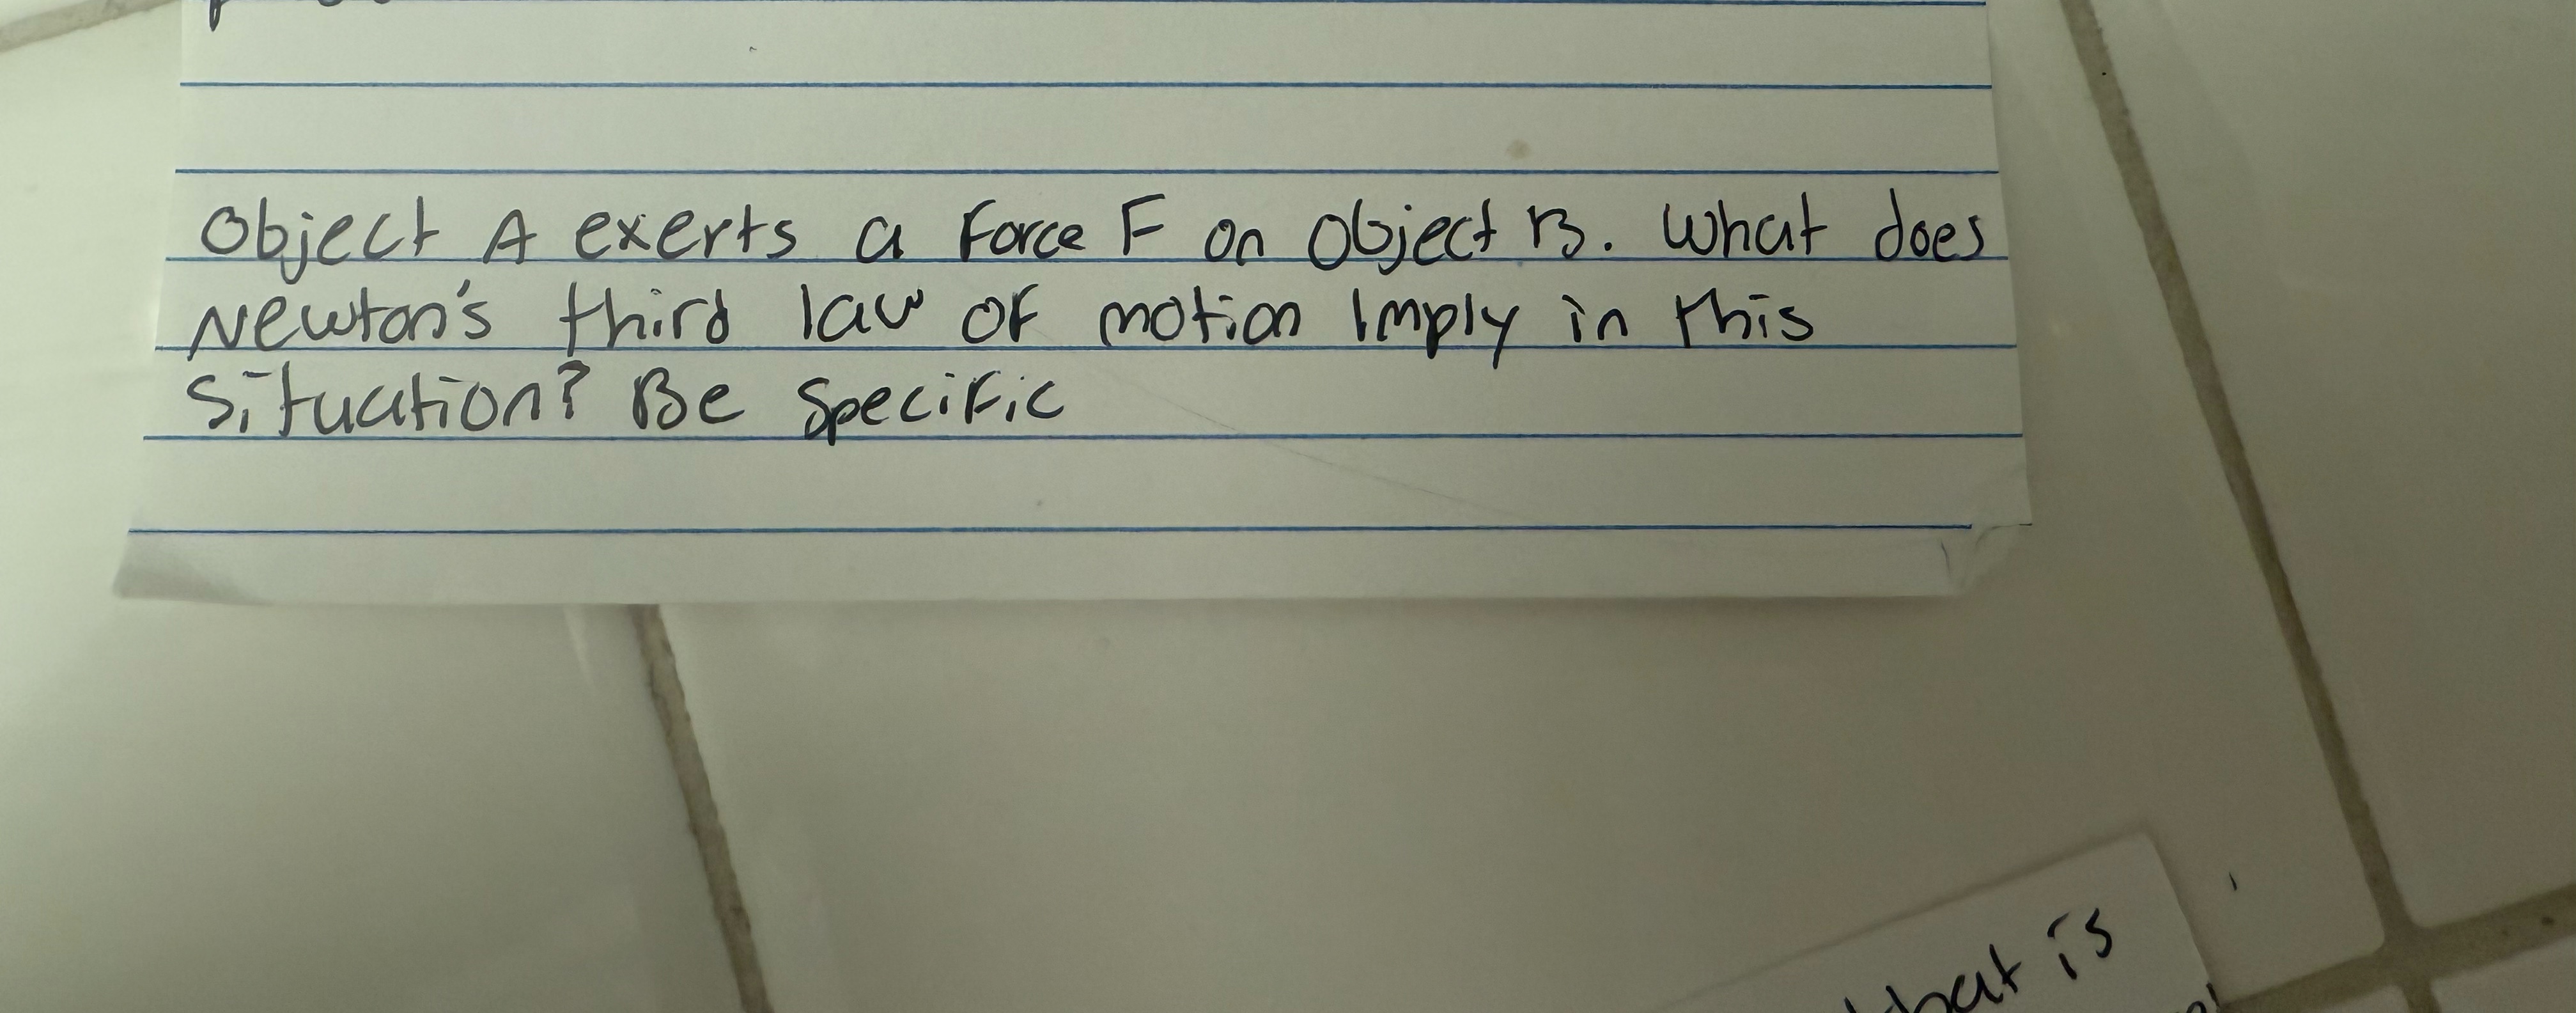 Object A exerts a Force F on Object B. What does
Newton's third law of motion Imply in this
situation? Be Specific
that is